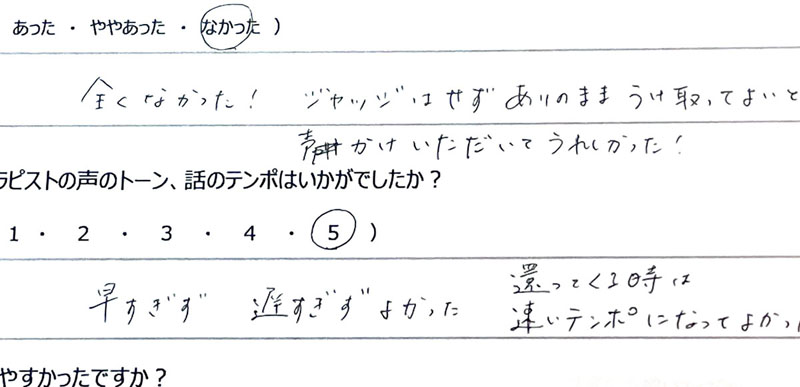 あった ・ ややあった ・ なかった )
全くなかった! ジャッジはせず ありのまま うけ取ってよいと
声かけ いただいて うれしかった!
ラピストの声のトーン、話のテンポはいかがでしたか?
1 ・ 2 ・ 3 ・ 4 ・ 5 )
早すぎず 遅すぎず よかった
還ってくる時は
速いテンポになってよかっ
やすかったですか?